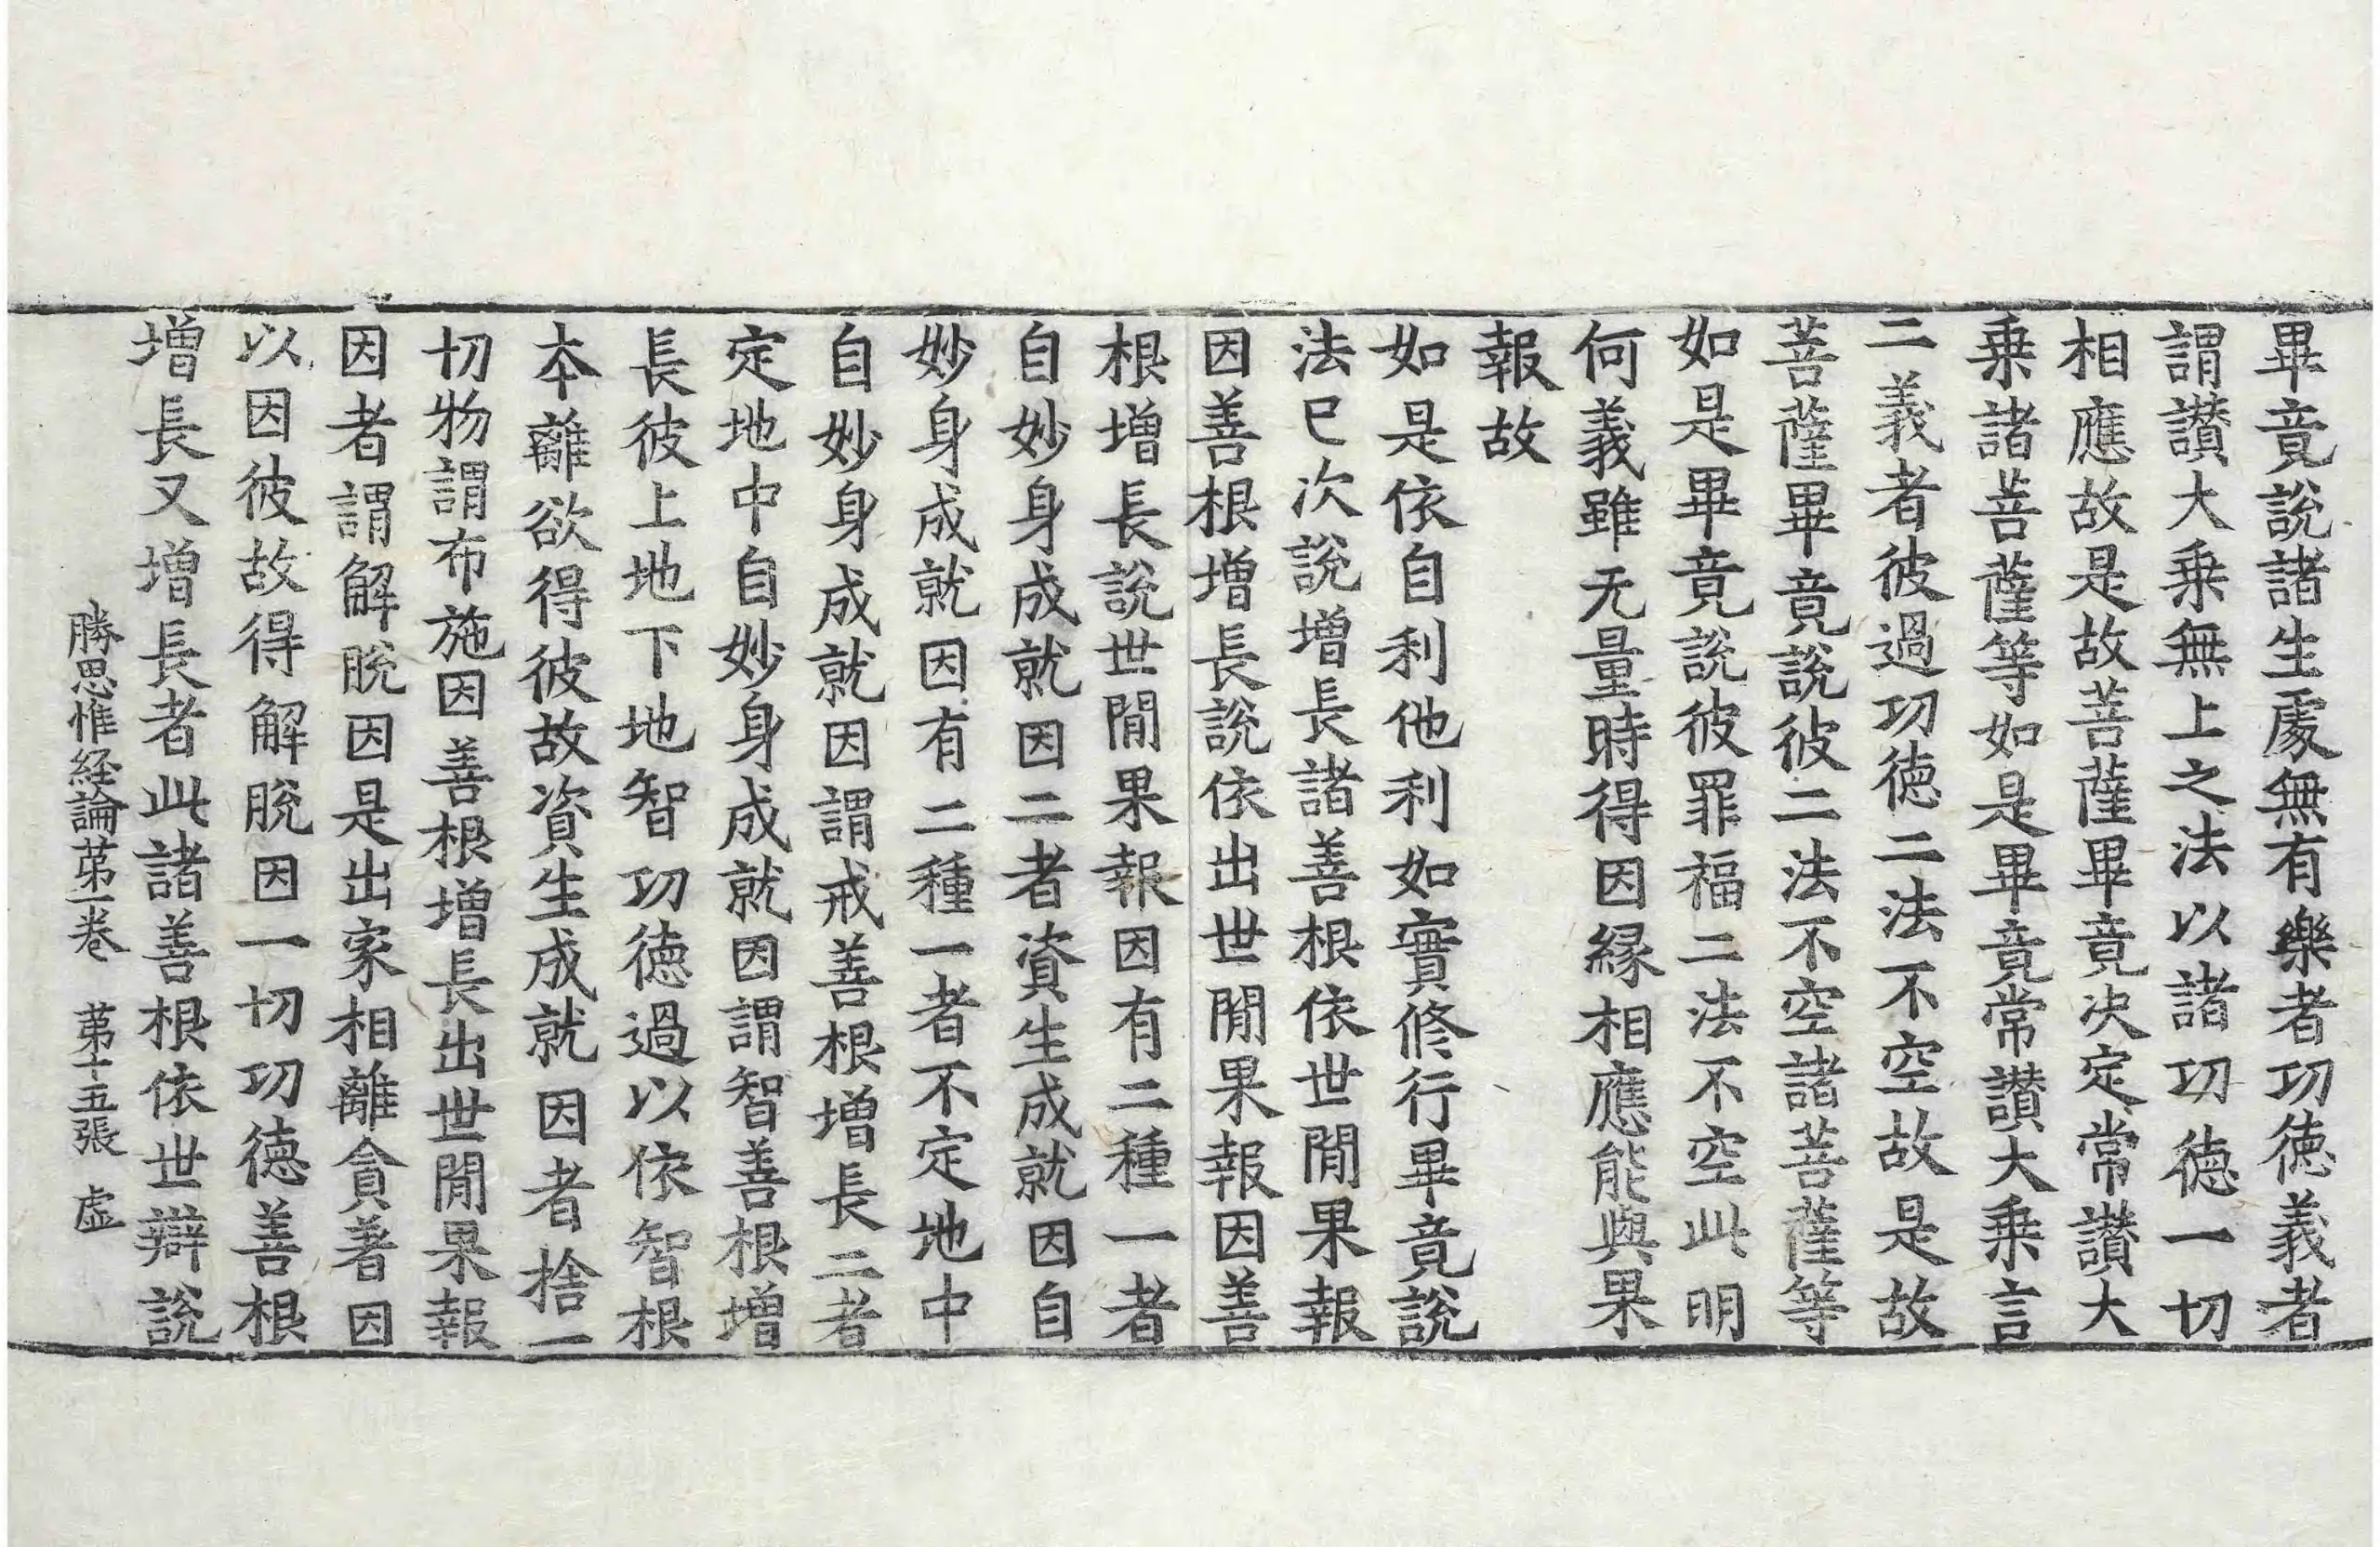 畢竟說諸生處無有樂者功德義者
謂讃大乗無上之法以諸功德一切
相應故是故菩薩畢竟决定常讃大
乗諸菩薩等如是畢竟常讃大乗言
二義者彼過功德二法不空故是故
菩薩畢竟說彼二法不空諸菩薩等
如是畢竟說彼罪福二法不空此明
何義雖无量時得因縁相應能與果
報故
如是依自利他利如實修行畢竟說
法已次說增長諸善根依世閒果報
因善根增長說依出世閒果報因善
根增長說世閒果報因有二種一者
自妙身成就因二者資生成就因自
妙身成就因有二種一者不定地中
自妙身成就因謂戒善根增長二者
定地中自妙身成就因謂智善根增
長彼上地下地智功德過以依智根
本離欲得彼故資生成就因者捨一
切物謂布施因善根增長出世閒果報
因者謂解脫因是出家相離貪著因
以因彼故得解脫因一切功德善根
增長又增長者此諸善根依世辯說
勝思惟経論苐一卷 苐十五張 虛